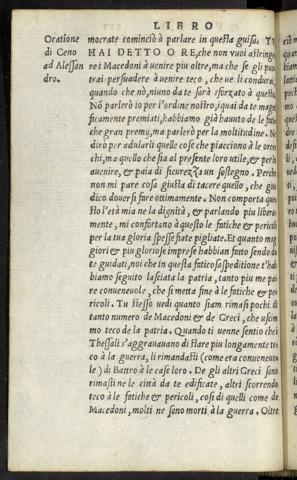 LIBRO
Oratione di Ceno ad Alessandro.
mocrate cominciò à parlare in questa guisa. TV
HAI DETTO O RE, che non vuoi astringere
i Macedoni à uenire piu oltre, ma che se gli po
trai persuadere à uenire teco, che ue li condurai,
quando che nò, niuno da te sarà sforzato à questo.
Nò parlerò io per l'ordine nostro, iquai da te magni
ficamente premiati, habbiamo già hauuto de le fatiche
che gran premy, ma parlerò per la moltidine. Ne
dirò per adularli quelle cose che piacciono à le orec
chi, ma quello che sia al presente loro utile, & per lo
auenire, & paia di sicurezza un sostegno. Perche
non mi pare cosa giusta di tacere quello, che giu
dico douersi fare ottimamente. Non comporta que
sto l'età mia ne la dignità, & parlando piu libera
mente, mi confortano à questo le fatiche & pericoli
per la tua gloria spesse fiate pigliate. Et quanto mag
giori & piu gloriose imprese habbian fatto sendo da
te guidati, noi che in questa faticosa speditione t'hab
biamo seguito lasciata la patria, tanto piu me pa
re conueneuole, che si metta fine à le fatiche & pe
ricoli. Tu stesso uedi quanto siam rimasi pochi di
tanto numero de Macedoni & de Greci, che usim
mo teco de la patria. Quando ti uenne sentio che i
Thessali s'aggrauauano di stare piu longamente te
co à la guerra, li rimandasti (come era conueneuo
le) di Battro à le case loro. De gli altri Greci sono
rimasti ne le città da te edificate, altri scorrendo
teco à le fatiche & pericoli, cosi di quelli come de
Macedoni, molti ne sono morti à la guerra. Oltre